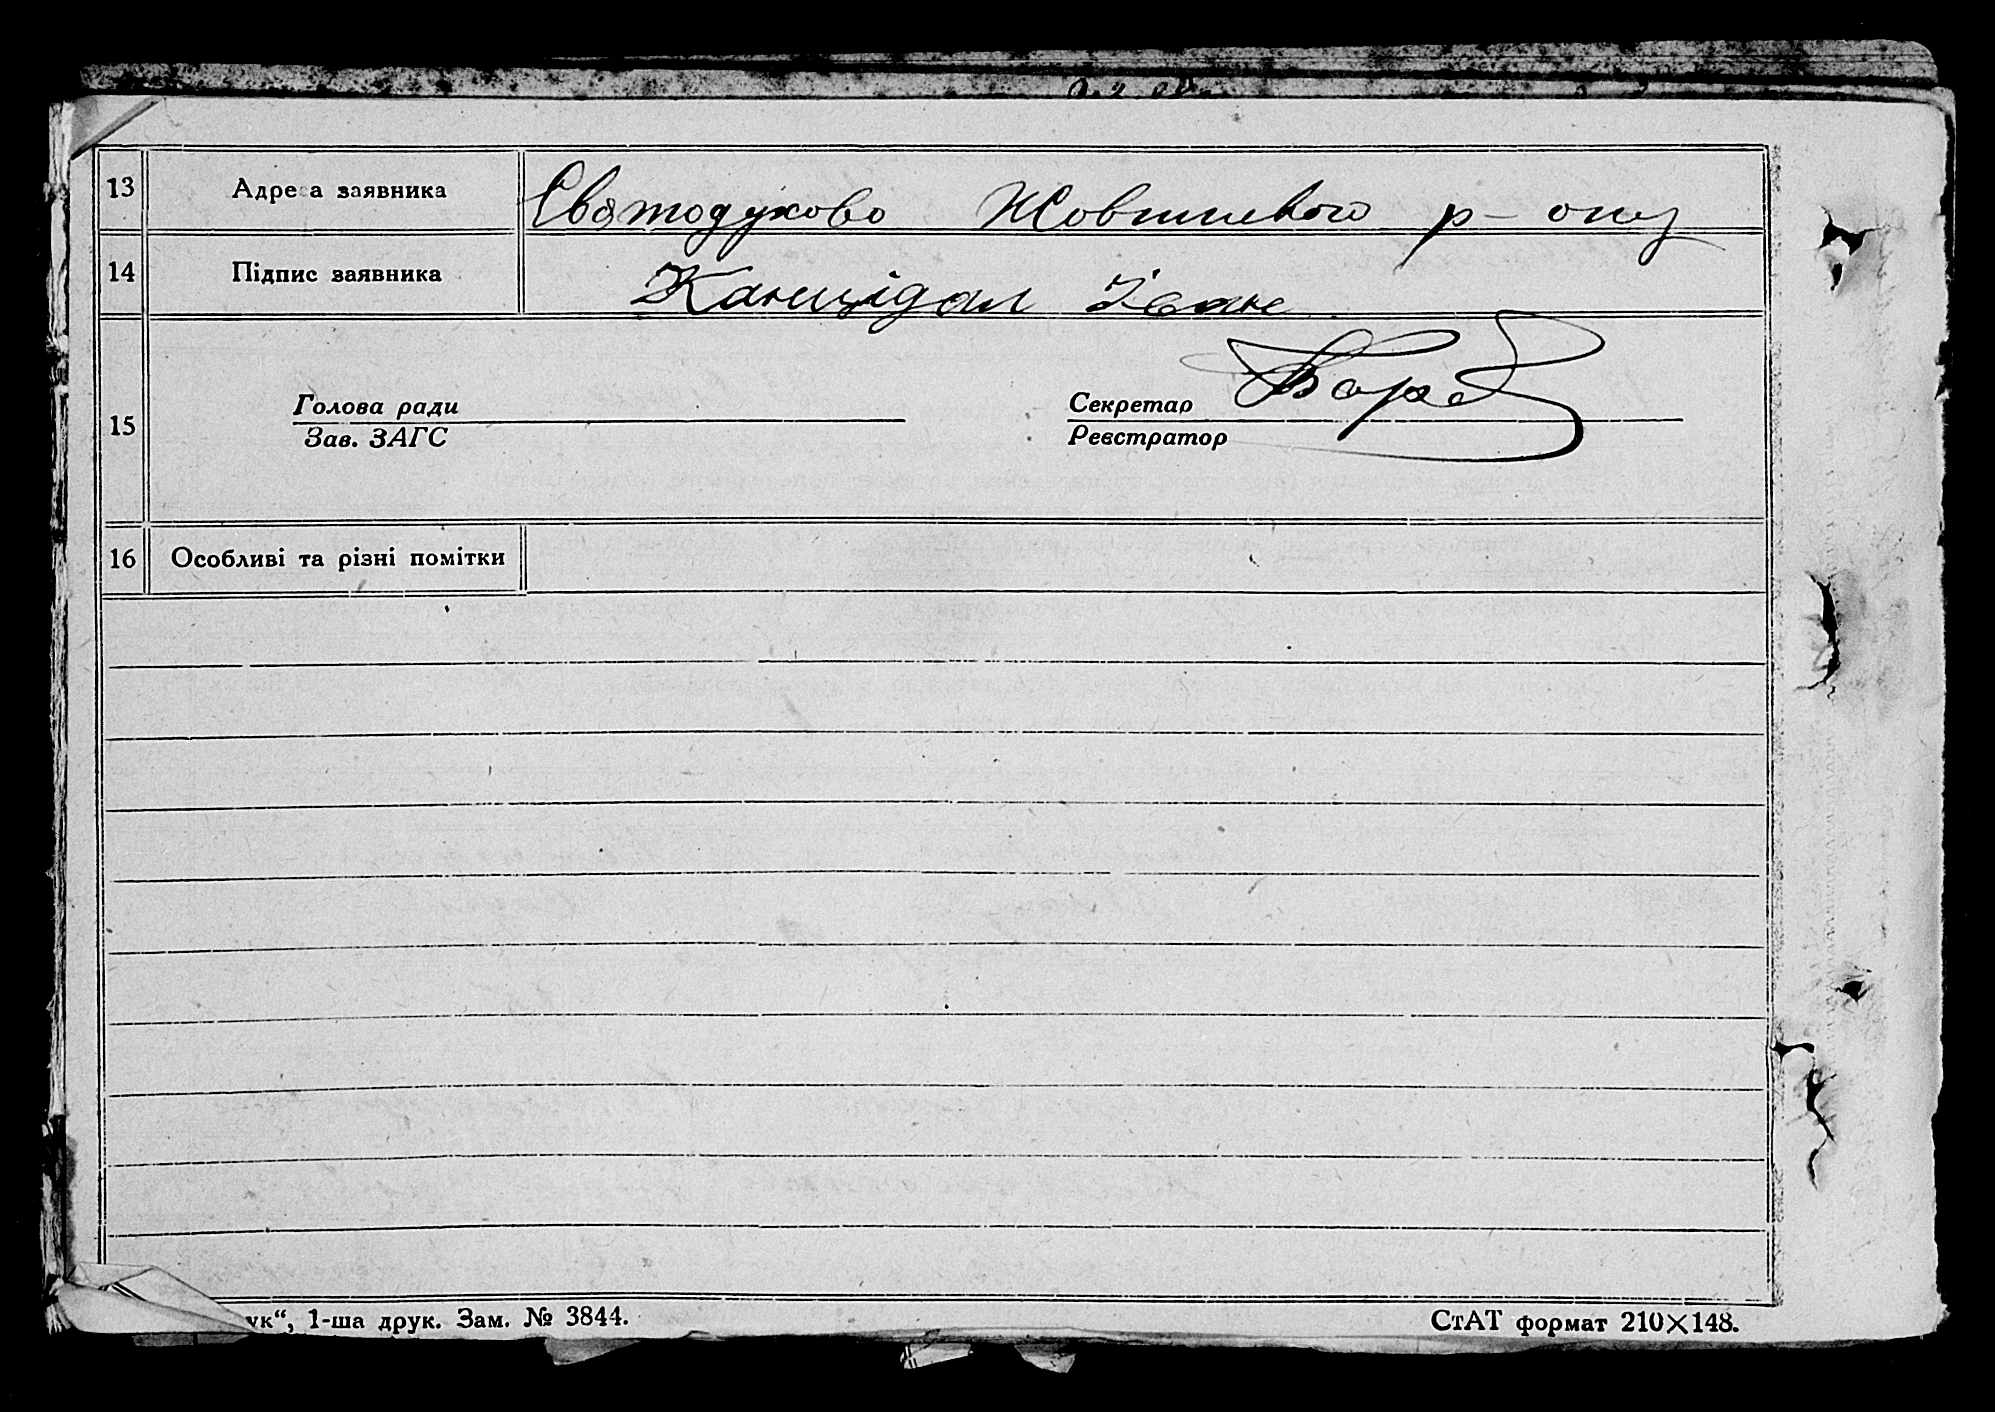 13 Адреса заявника Святодухово Жовтневого р-ону
14 Підпис заявника Канцідал Іван
15 Голова ради
Зав. ЗАГС
Секретар
Реєстратор
16 Особливі та різні помітки
ук“, 1-ша друк. Зам. № 3844.
СтАТ формат 210×148.